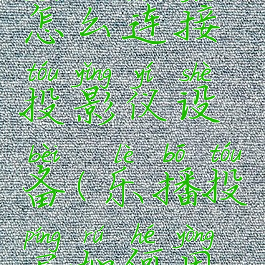 怎么连接
tóu yǐng yí shè
投影仪设
bèi lè bō tóu
备(乐播投
píng rú hé yòng
屏如何用